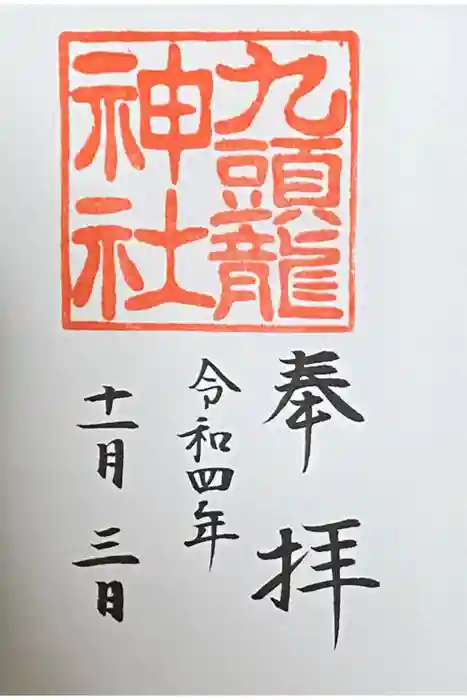 九頭龍
神社
奉拝
令和四年
十一月三日